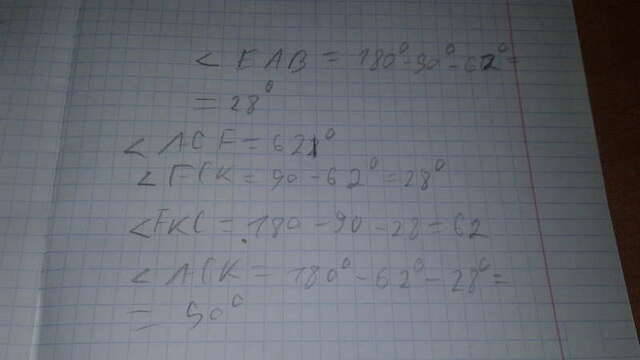 < EAB = 180°-90°-62°=
= 28°
< ACF = 62°
< FCK = 90-62°=28°
<FKC = 180-90-28=62
< ACK = 180°-62°-28°=
= 90°